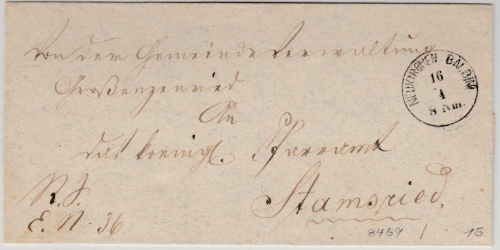 Von der Gemeindeverwaltung
Großenzenried
An
das koenigl. Pfarramt
Stamsried.
R. S.
E. N. 36
NEUKIRCHEN BALBINI
16
4
8 Nm.
8459 / 15